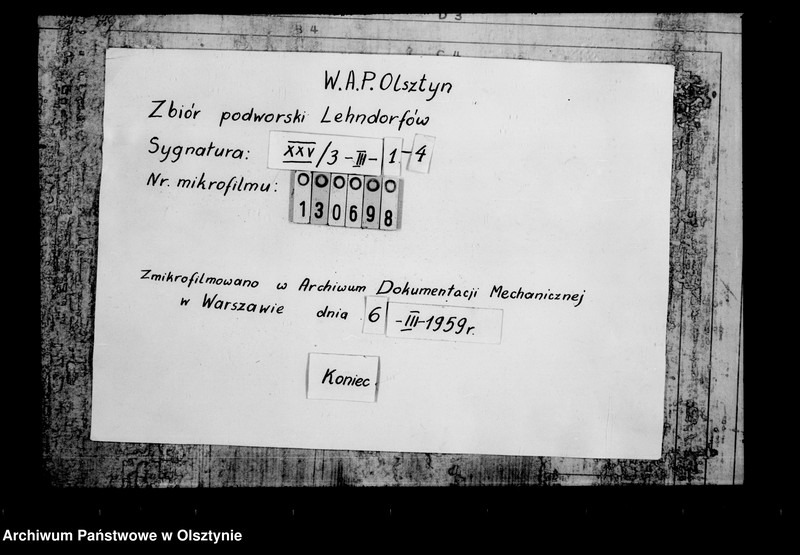 B 4
D 3
C 4
W.A.P. Olsztyn
Zbiór podworski Lehndorfów
Sygnatura: XXV/3-III-1-4
Nr. mikrofilmu: 130698
Zmikrofilmowano w Archiwum Dokumentacji Mechanicznej
w Warszawie dnia 6-III-1959r.
Koniec
Archiwum Państwowe w Olsztynie